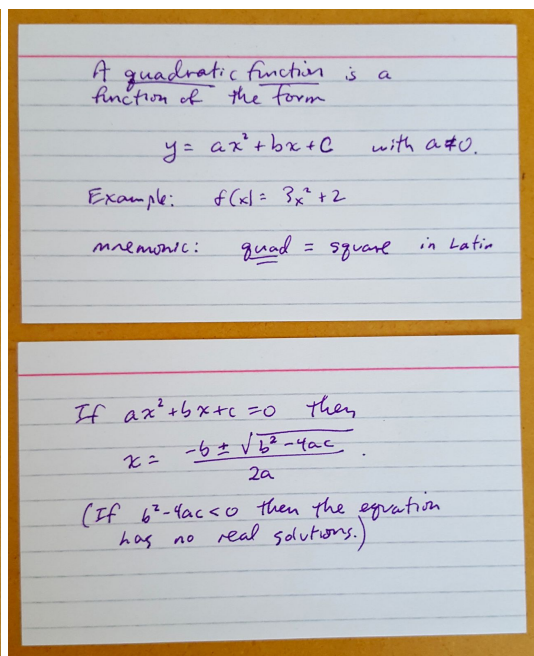 A quadratic function is a
function of the form
y = ax² + bx + C with a≠0.
Example: f(x) = 3x² + 2
mnemonic: quad = square in Latin
If ax² + bx + c = 0 then
x = (-b ± √(b² - 4ac)) / 2a.
(If b² - 4ac < 0 then the equation
has no real solutions.)